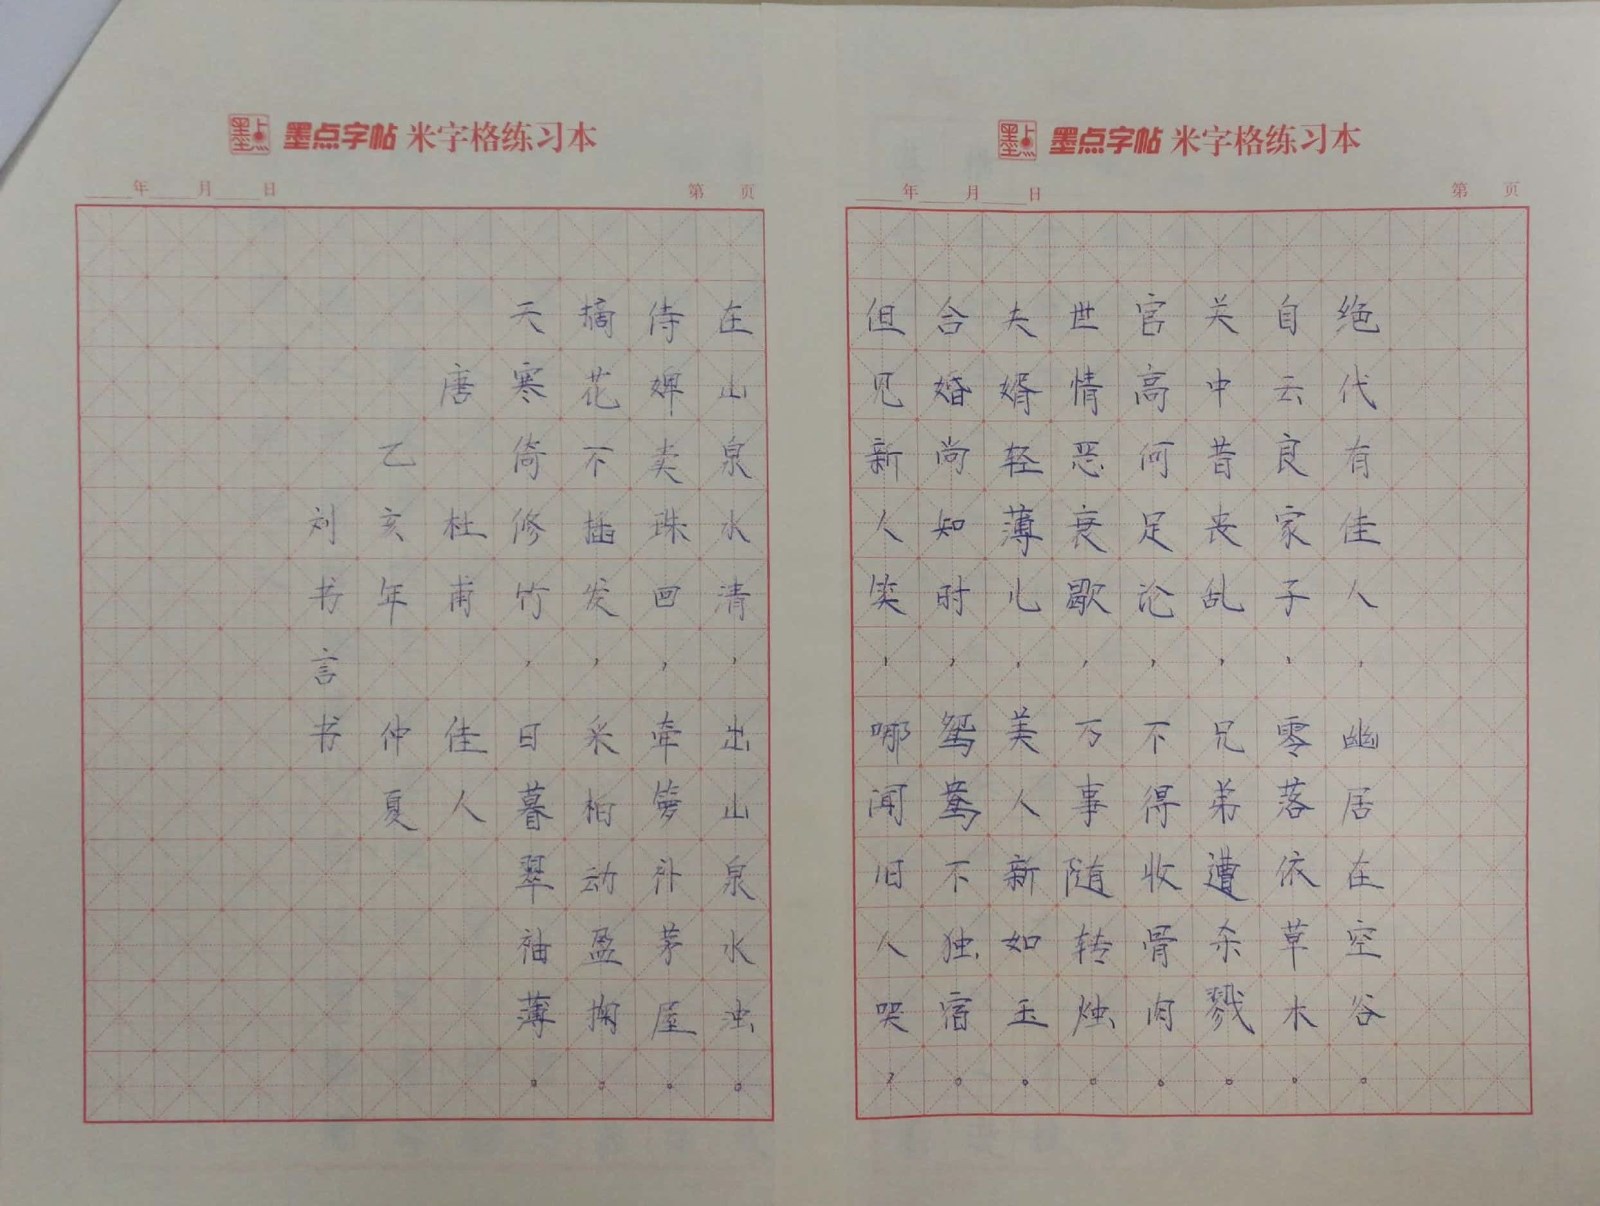 墨点
墨点字帖 米字格练习本
年 月 日
第 页
绝代有佳人，幽居在空谷。
自云良家子，零落依草木。
关中昔丧乱，兄弟遭杀戮。
官高何足论，不得收骨肉。
世情恶衰歇，万事随转烛。
夫婿轻薄儿，美人新如玉。
合婚尚知时，鸳鸯不独宿。
但见新人笑，哪闻旧人哭，
墨点
墨点字帖 米字格练习本
年 月 日
第 页
在山泉水清，出山泉水浊。
侍婢卖珠回，牵萝补茅屋。
摘花不插发，采柏动盈掬。
天寒倚修竹，日暮翠袖薄。
唐 杜甫 佳人
乙亥年 仲夏
刘书言书